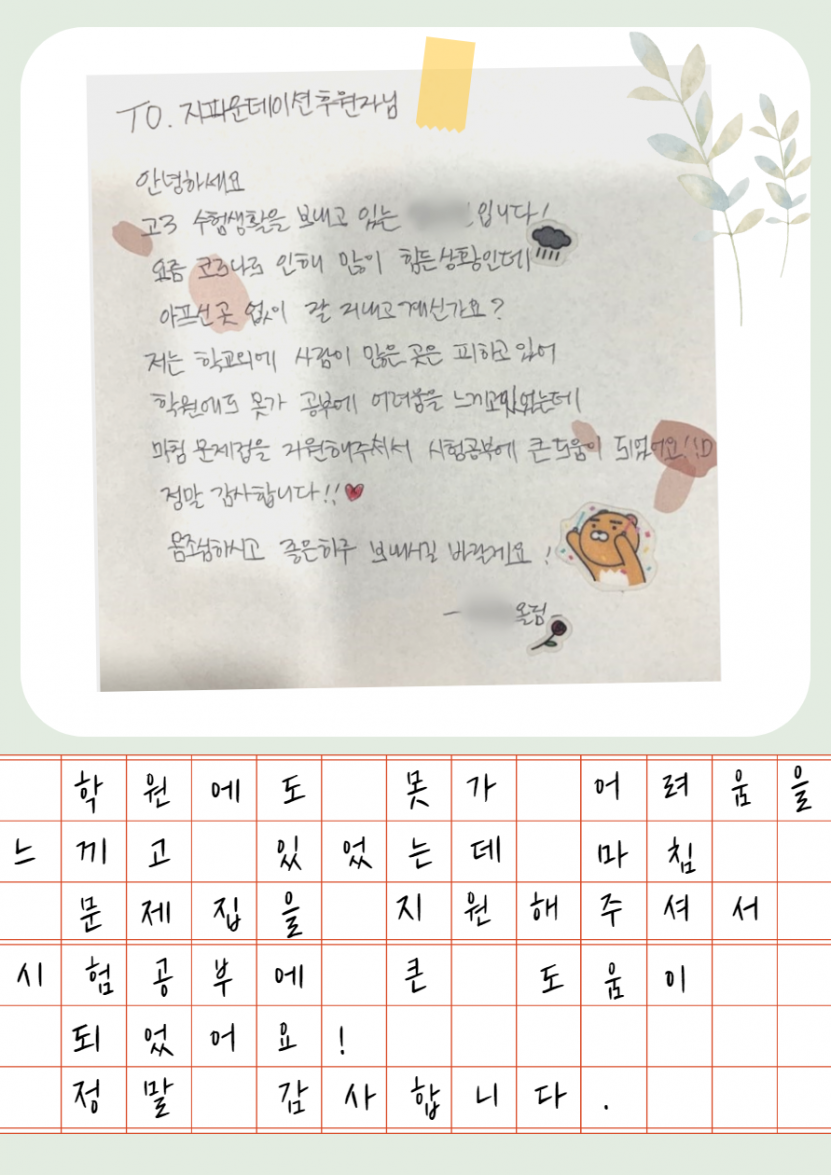 TO. 지파운데이션후원자님
안녕하세요
고3 수험생활을 보내고 있는 입니다!
요즘 코로나로 인해 많이 힘든상황인데
아프신곳 없이 잘 지내고계신가요?
저는 학교외에 사람이 많은곳은 피하고있어
학원에도 못가 공부에 어려움을 느끼고있었는데
마침 문제집을 지원해주셔서 시험공부에 큰도움이 되었어요! :D
정말 감사합니다!!
몸조심하시고 좋은하루 보내시길 바랄게요!
- 올림-
학원에도 못가 어려움을
느끼고 있었는데 마침
문제집을 지원해주셔서
시험공부에 큰 도움이
되었어요!
정말 감사합니다.